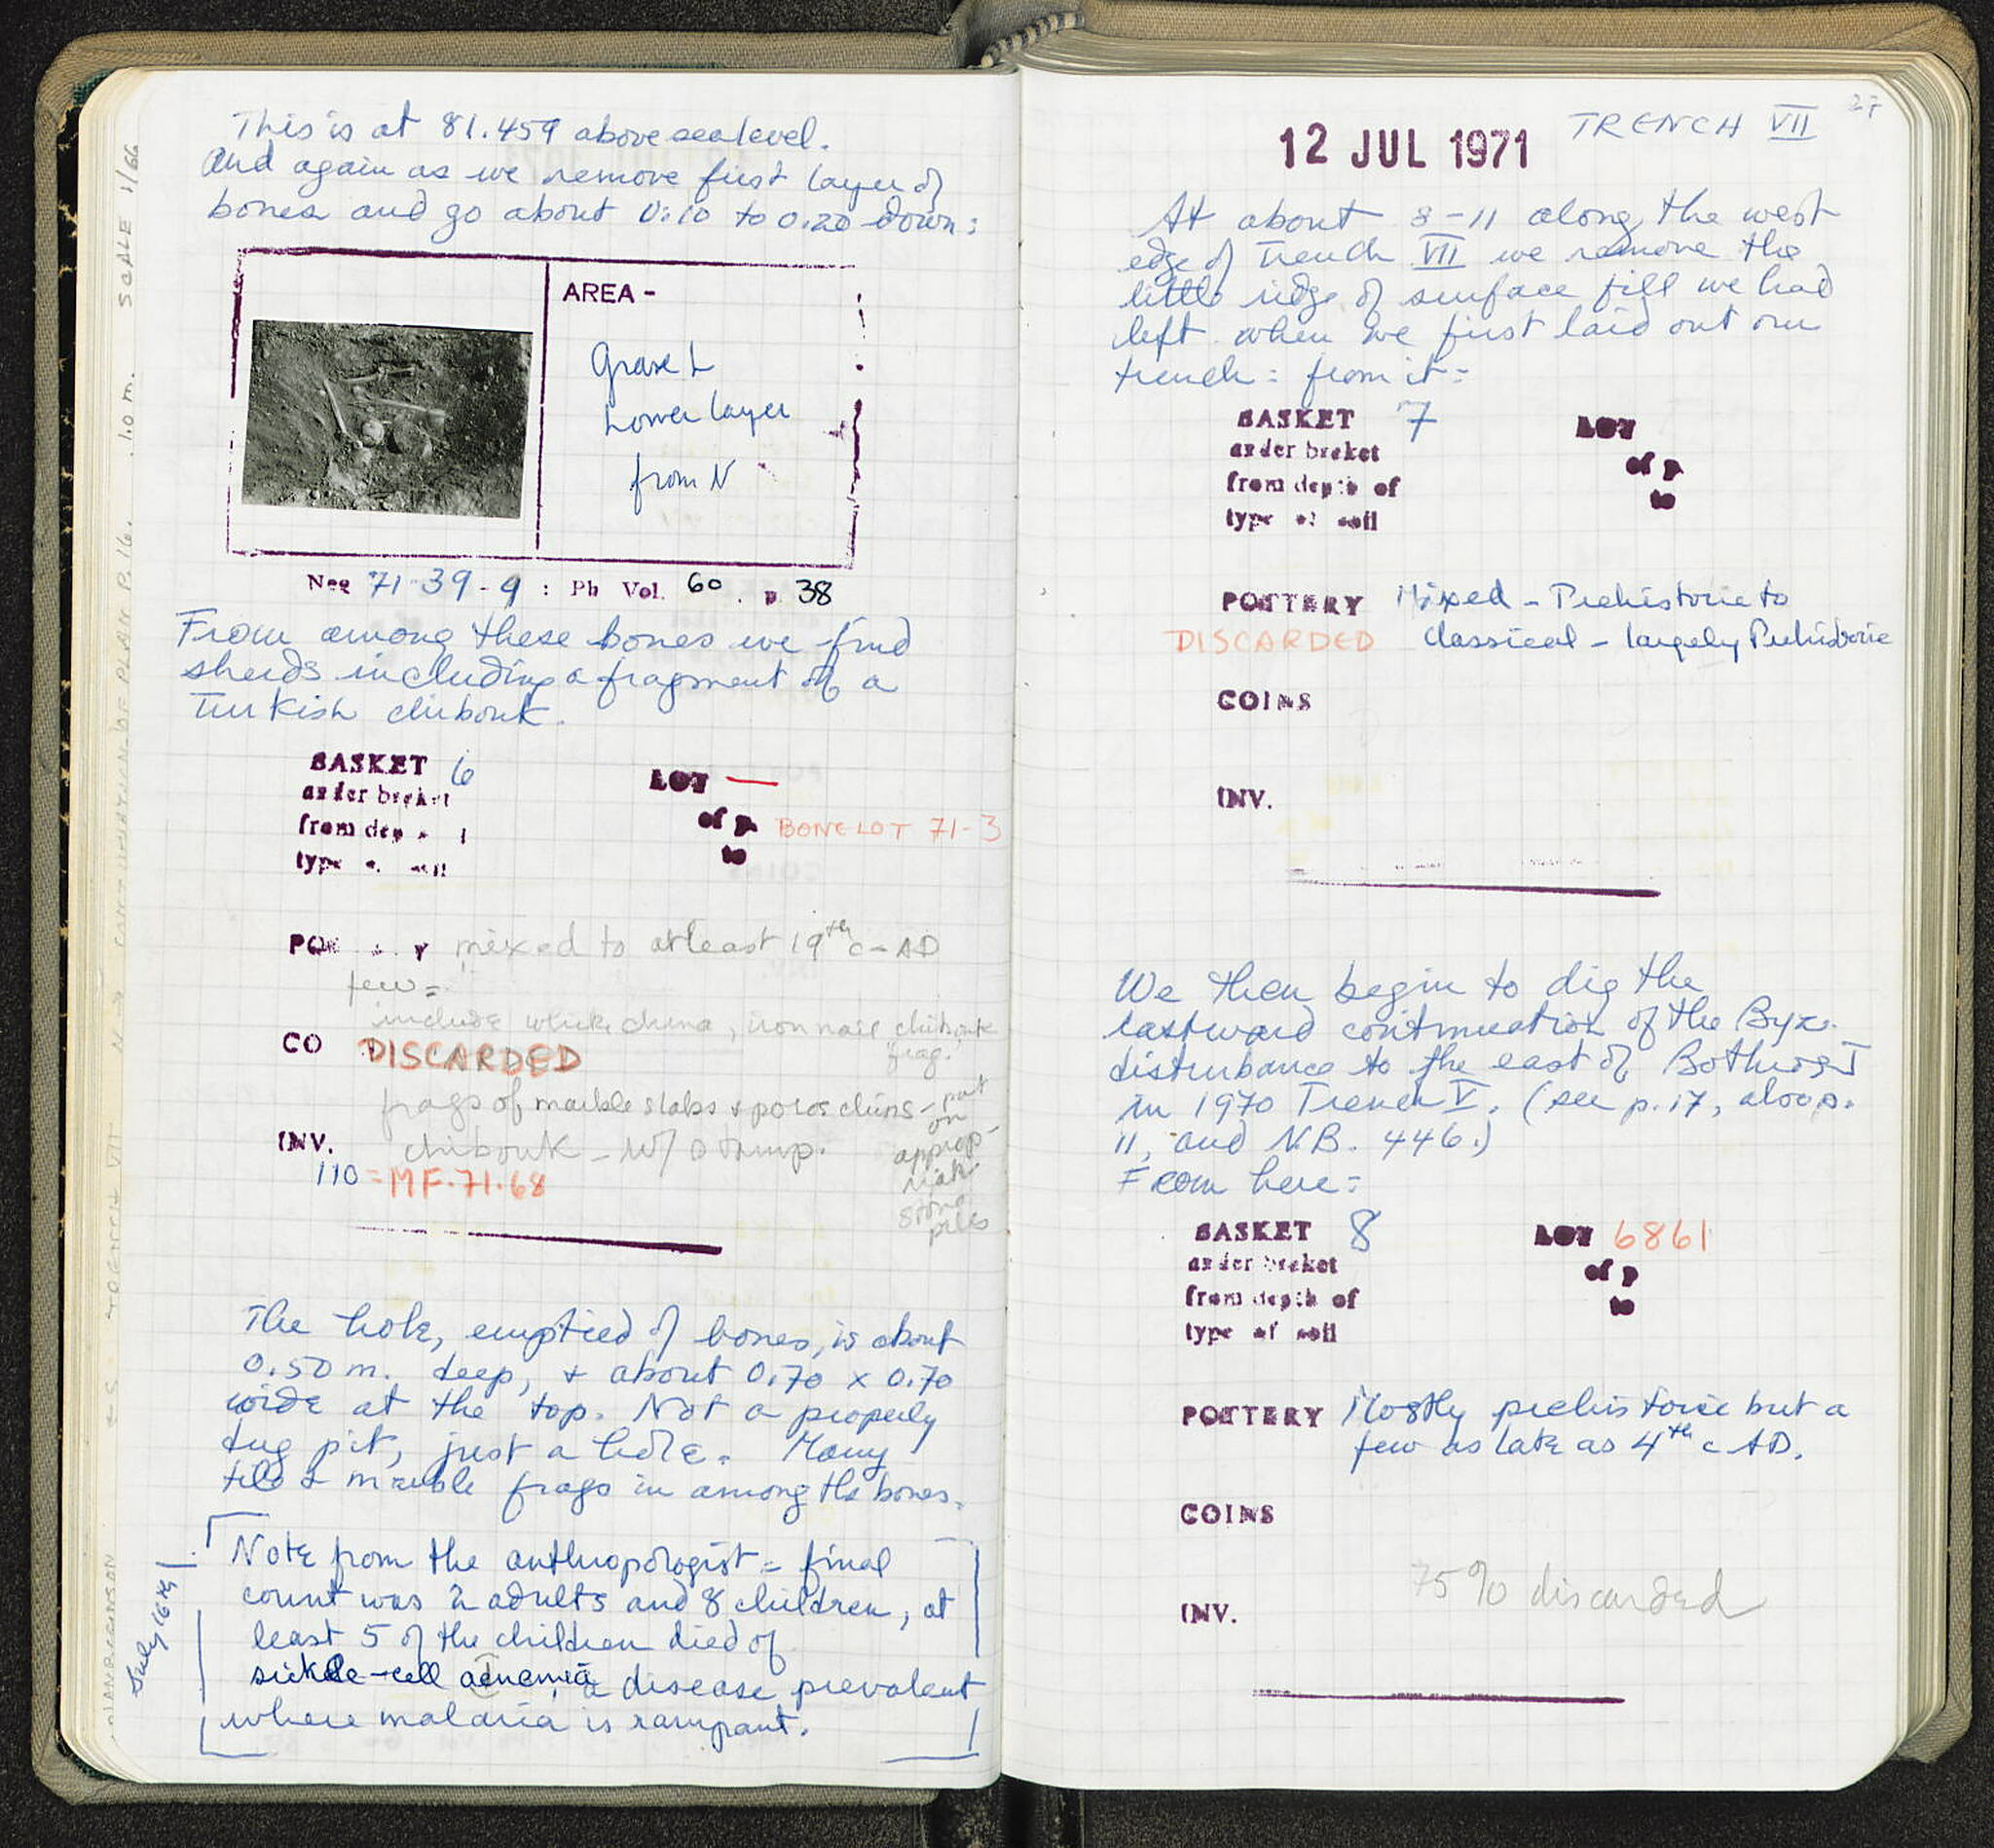 This is at 81.459 above sea level.
And again as we remove first layer of
bones and go about 0.10 to 0.20 down:
AREA -
Grave L
Lower layer
from N
Neg 71-39-9 : Ph Vol. 60 . p. 38
From among these bones we find
sherds including a fragment of a
Turkish chibouk.
BASKET 6
under basket
from dep
type
LOT —
of p. BONE LOT 71-3
to
mixed to at least 19th c-AD
few =
include white china, iron nail, chibouk
frag.
CO DISCARDED
frags of marble slabs + poros chips - put
on
approp-
riate
stone
piles
chibouk - w/ stamp.
INV.
110 = MF.71.68
The hole, emptied of bones, is about
0.50 m. deep, + about 0.70 x 0.70
wide at the top. Not a properly
dug pit, just a hole. Many
tile + marble frags in among the bones.
July 16th
Note from the anthropologist = final
count was 2 adults and 8 children, at
least 5 of the children died of
sickle-cell anemia, a disease prevalent
where malaria is rampant.
SCALE 1/66
10 m.
OF PLAN P.16.
TRENCH VII
27
12 JUL 1971
TRENCH VII
At about 8-11 along the west
edge of Trench VII we remove the
little ridge of surface fill we had
left when we first laid out our
trench: from it:
BASKET 7
under basket
from depth of
type of soil
LOT
of p.
to
POTTERY Mixed - Prehistoric to
DISCARDED Classical - largely Prehistoric
COINS
INV.
We then begin to dig the
eastward continuation of the Byz.
disturbance to the east of Bothros I
in 1970 Trench V. (see p.17, also p.
11, and N.B. 446.)
From here:
BASKET 8
under basket
from depth of
type of soil
LOT 6861
of p
to
POTTERY Mostly prehistoric but a
few as late as 4th c AD.
COINS
75% discarded
INV.